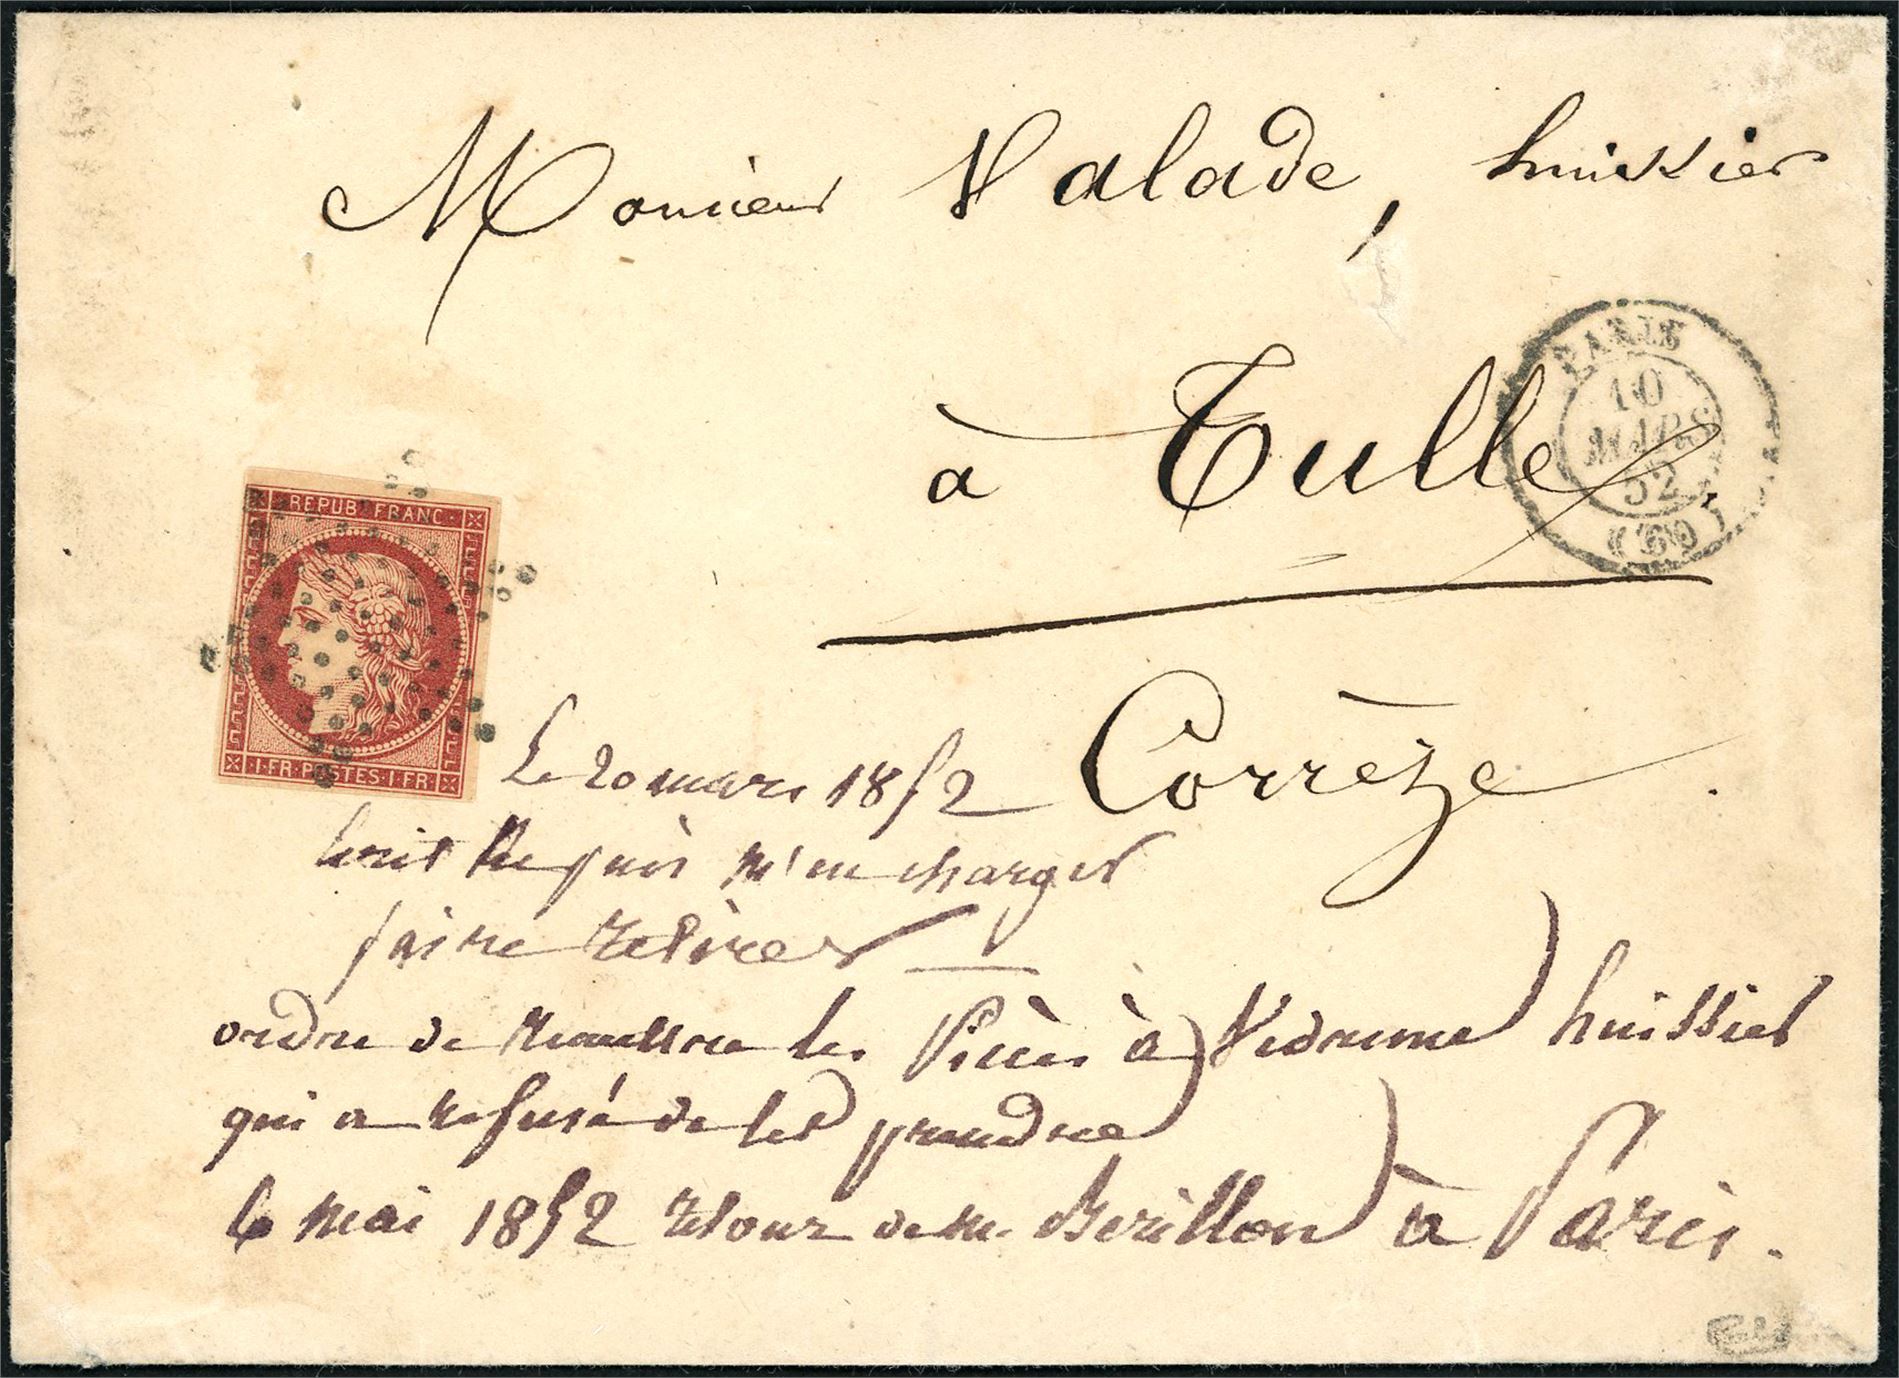 Monsieur Valade, huissier
à Tulle
Corrèze
PARIS
10
MARS
52
(60)
REPUB FRANC
1·FR·POSTES·1·FR
Le 20 mars 1852
m'en charger
faire retirer
ordre de remettre les Pièces à Vedrenne huissier
qui a refusé de les prendre
6 mai 1852 retour de M. Berillon à Paris.